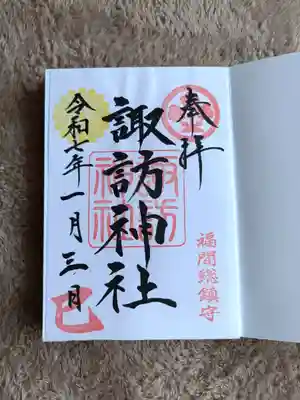 奉拝
福間總鎮守
諏訪神社
諏訪神社
令和七年一月三日
巳